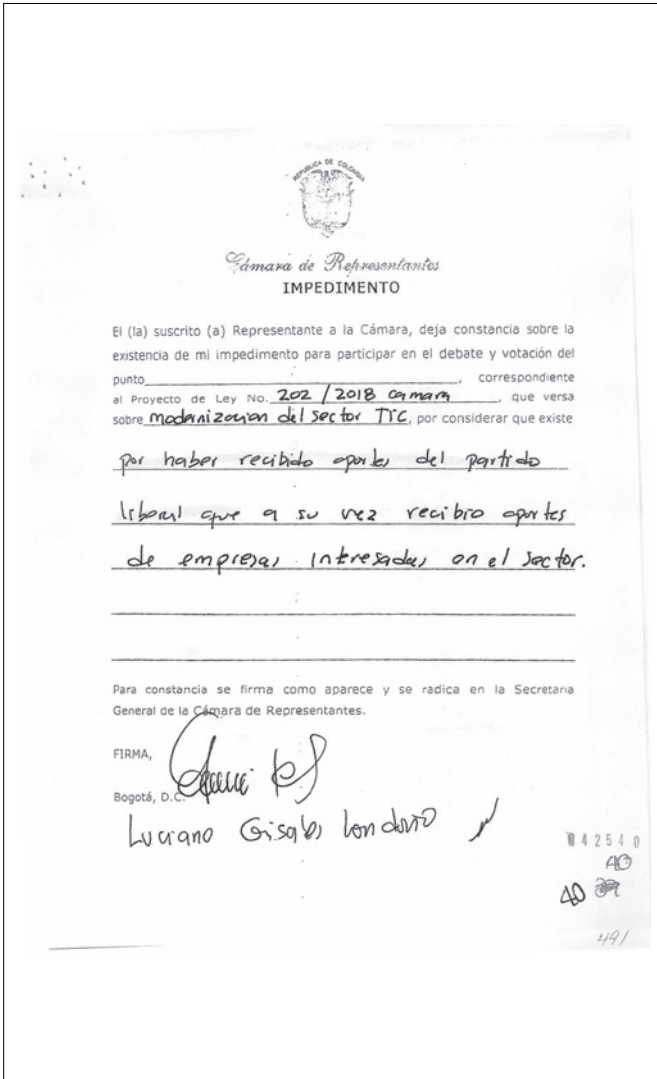 REPUBLICA DE COLOMBIA
Cámara de Representantes
IMPEDIMENTO
El (la) suscrito (a) Representante a la Cámara, deja constancia sobre la
existencia de mi impedimento para participar en el debate y votación del
punto , correspondiente
al Proyecto de Ley No. 202 / 2018 camara , que versa
sobre modernizacion del sector TIC, por considerar que existe
por haber recibido aportes del partido
liberal que a su vez recibio aportes
de empresas interesadas en el sector.
Para constancia se firma como aparece y se radica en la Secretaria
General de la Cámara de Representantes.
FIRMA,
Bogotá, D.C.
Luciano Grisales Londoño
042540
AO
AO
491